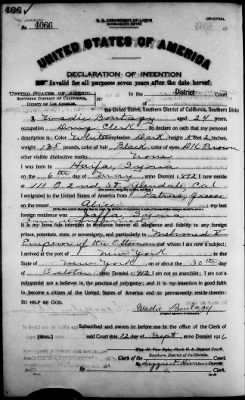 4066
ORIGINAL
UNITED STATES OF AMERICA
DECLARATION OF INTENTION
Invalid for all purposes seven years after the date hereof
United States of America
District
Southern District of California,
County of Los Angeles.
the United States, Southern District of California, Southern Divi
aged 24 years,
occupation Clerk, do declare on oath that my personal
description is: Color White, complexion Dark, height feet inches,
weight 135 pounds, color of hair Black, color of eyes Dk Brown
other visible distinctive marks None
I was born in Haifa, Syria
on the 6th day of, anno Domini 1; I now reside
at Glendale, Cal
I emigrated to the United States of America from Patras, Greece
on the vessel Alice; my last
foreign residence was Jaffa, Syria
It is my bona fide intention to renounce forever all allegiance and fidelity to any foreign
prince, potentate, state, or sovereignty, and particularly to
Emperor of the Ottomans, of whom I am now a subject;
I arrived at the port of New York, in the
State of New York, on or about the 30th day
of October, anno Domini 1912; I am not an anarchist; I am not a
polygamist nor a believer in the practice of polygamy; and it is my intention in good faith
to become a citizen of the United States of America and to permanently reside therein:
SO HELP ME GOD.
Subscribed and sworn to before me in the office of the Clerk of
said Court this 12 day of Sept, anno Domini 191
Clerk, U. S. District Court
Southern District of California.
By